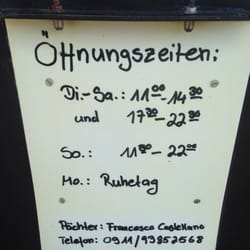 Öffnungszeiten:
Di.-Sa.: 11⁰⁰-14³⁰
und 17³⁰-22³⁰
So.: 11³⁰-22⁰⁰
Mo.: Ruhetag
Pächter: Francesco Castellano
Telefon: 0911/93852568